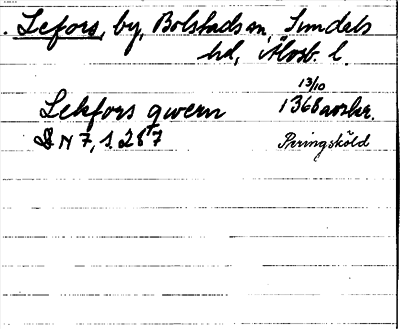 Lefors, by, Bolstads sn, Sundals
hd, Älvsb. l.
13/10
Lekfors qwern 1368 avskr.
SN 7, s 287 Peringsköld